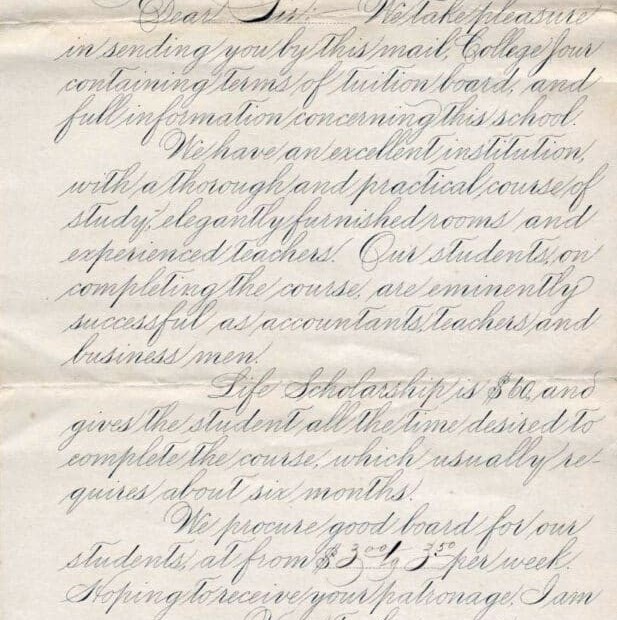 Dear Sir: We take pleasure
in sending you by this mail, College Jour
containing terms of tuition board, and
full information concerning this school.
We have an excellent institution,
with a thorough and practical course of
study, elegantly furnished rooms and
experienced teachers. Our students, on
completing the course, are eminently
successful as accountants, teachers and
business men.
Life Scholarship is $60, and
gives the student all the time desired to
complete the course, which usually re-
quires about six months.
We procure good board for our
students, at from $3.00 to 3.50 per week.
Hoping to receive your patronage, I am